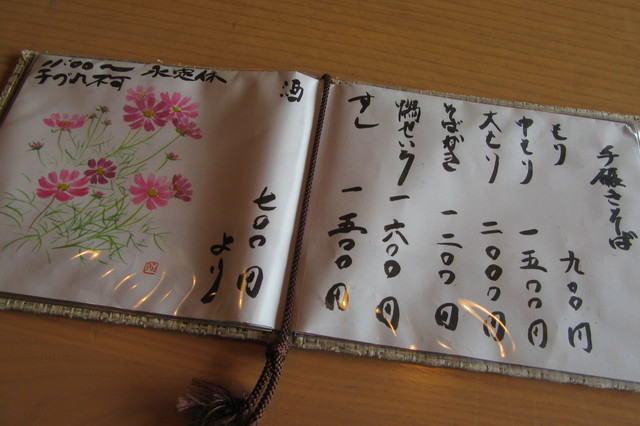 手碾きそば
もり 九〇〇円
中もり 一五〇〇円
大もり 二〇〇〇円
そばがき 一二〇〇円
鴨せいろ 一六〇〇円
すし 一五〇〇円
酒 七〇〇円
より
11:00〜 水定休
子づれ不可